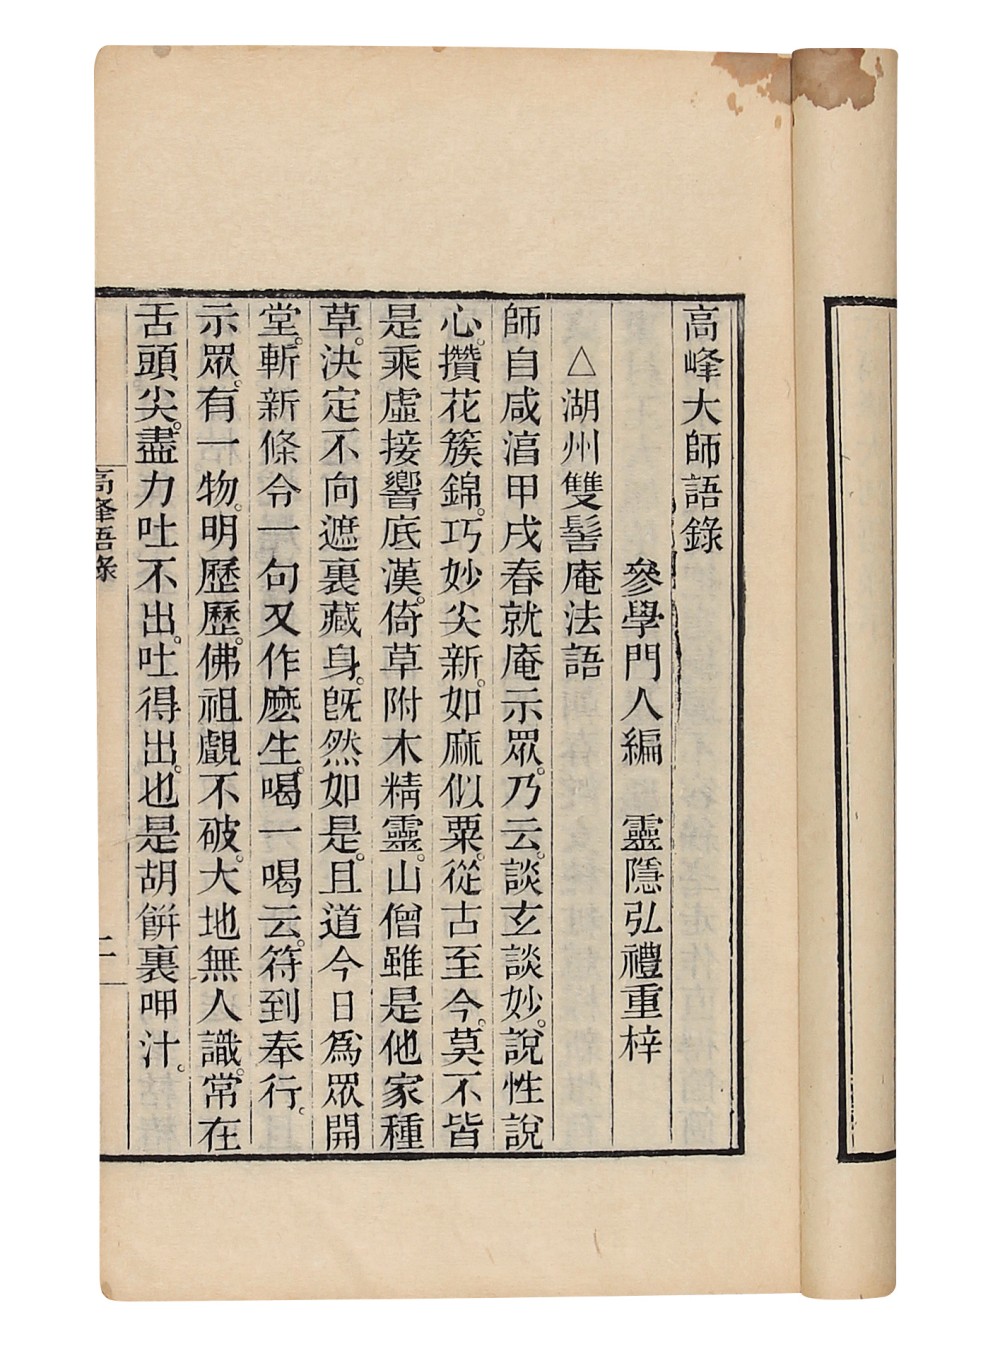 高峰大師語錄
參學門人編 靈隱弘禮重梓
△湖州雙髻庵法語
師自咸淳甲戌春就庵示眾。乃云。談玄談妙。說性說
心。攢花簇錦。巧妙尖新。如麻似粟。從古至今。莫不皆
是乘虛接響底漢。倚草附木精靈。山僧雖是他家種
草。決定不向遮裏藏身。旣然如是。且道今日爲眾開
堂。斬新條令一句又作麽生。喝一喝云。符到奉行。
示眾。有一物。明歷歷。佛祖覷不破。大地無人識。常在
舌頭尖。盡力吐不出。吐得出。也是胡餅裏呷汁。
高峰語錄
二